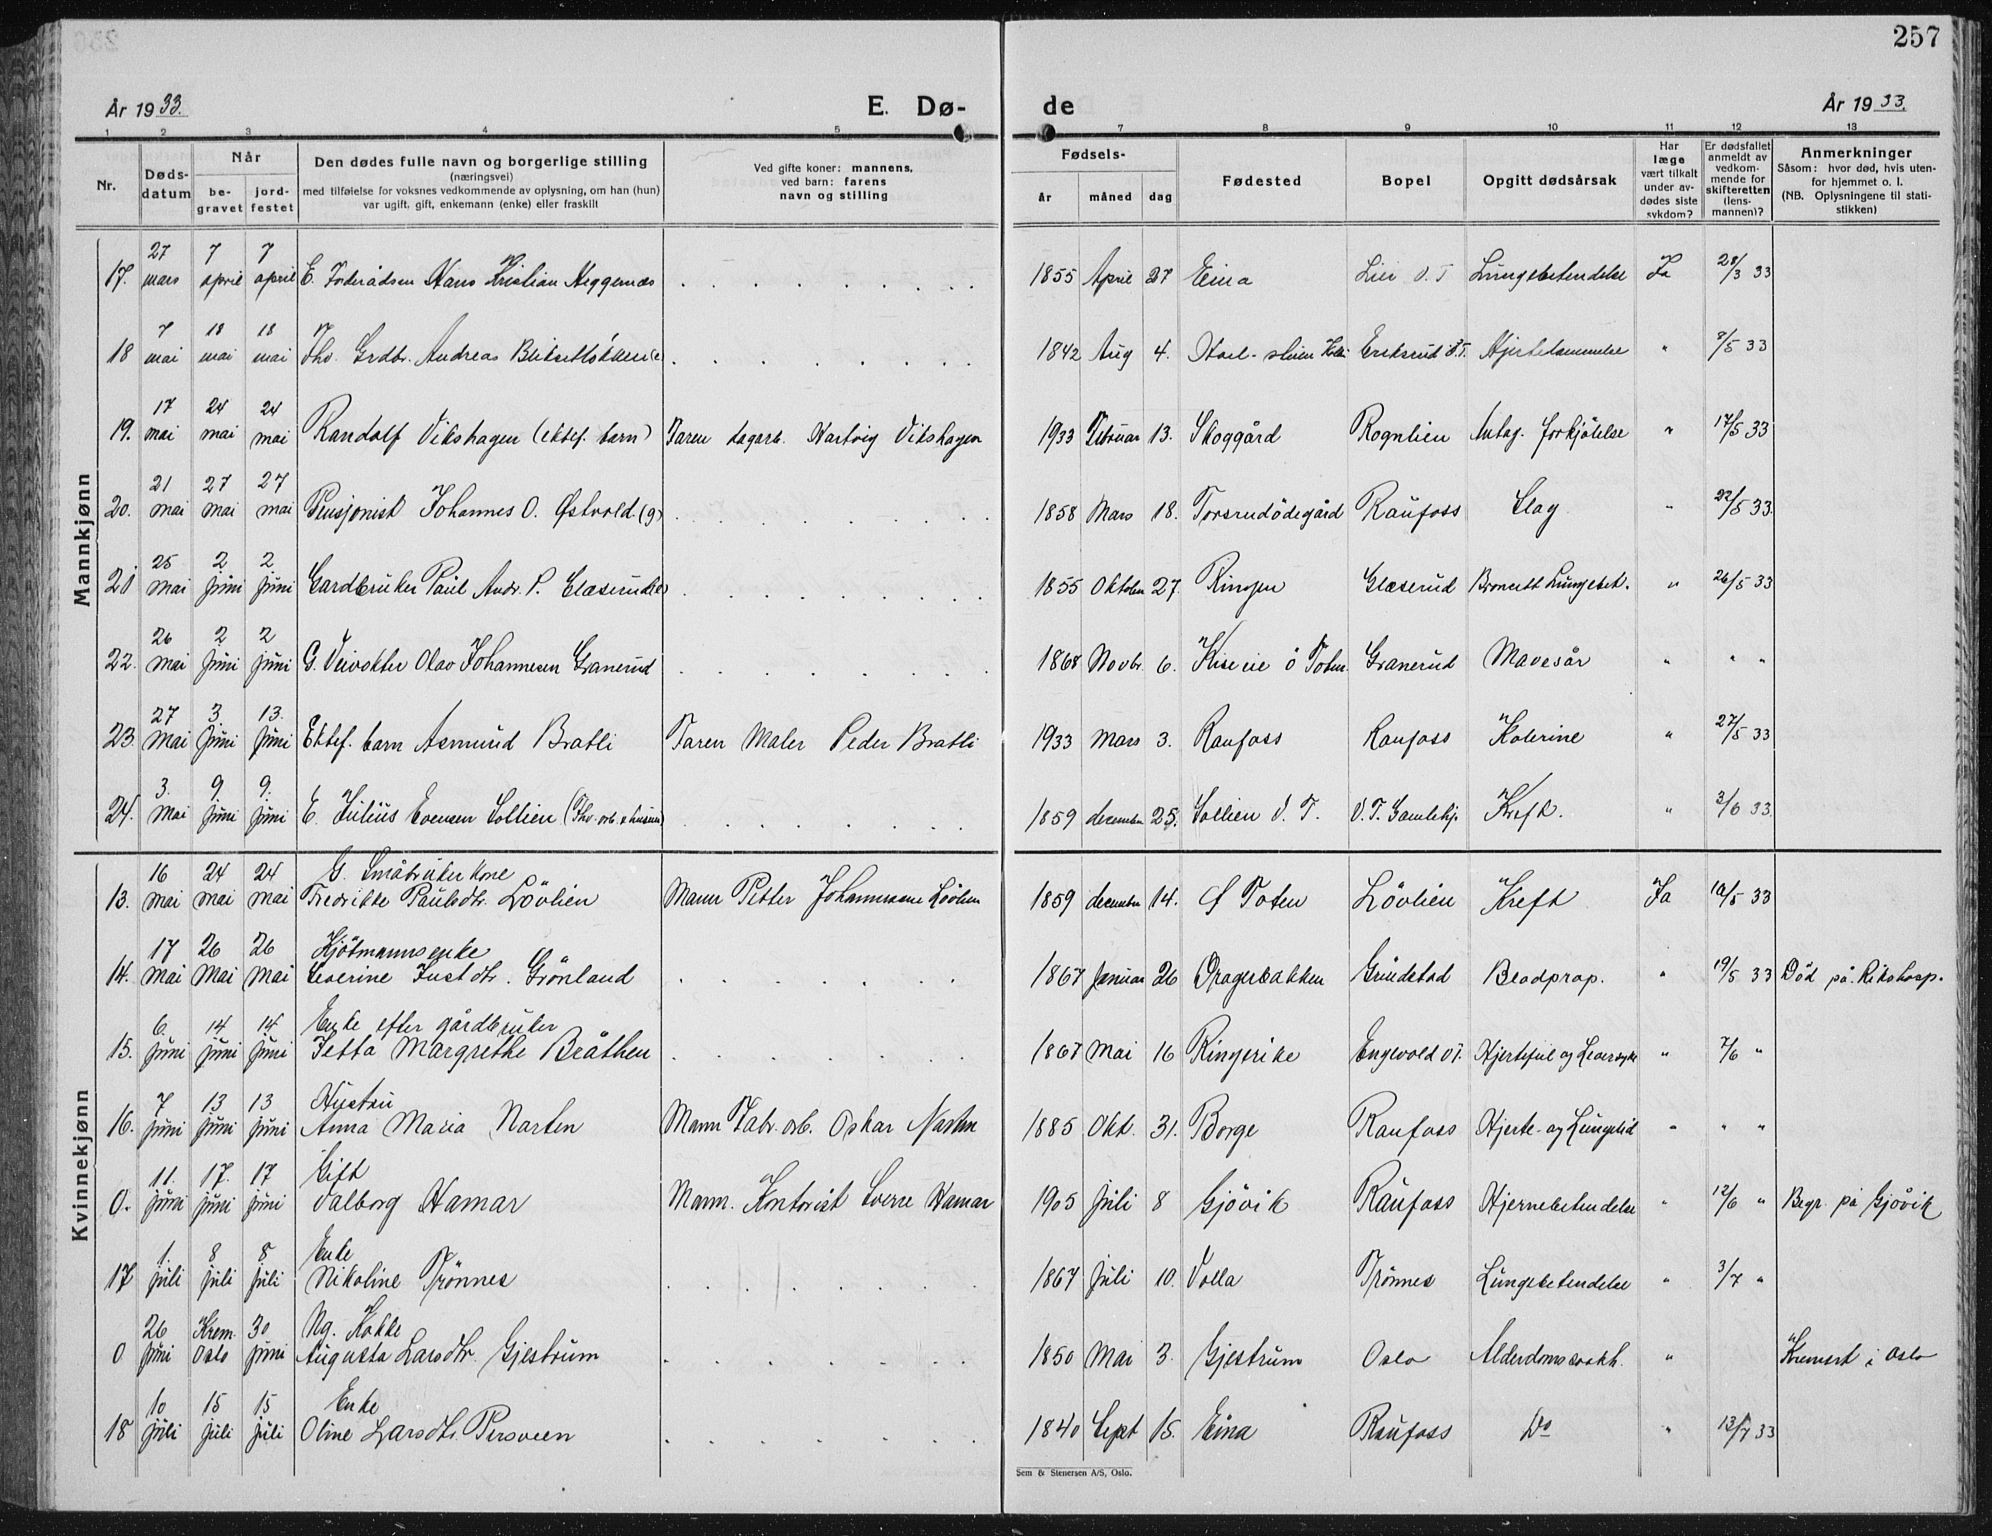 257
År 1933. E. Dø- de År 1933.
1 2 3 4 5 7 8 9 10 11 12 13
Nr. Døds-datum Når be-gravet jord-festet Den dødes fulle navn og borgerlige stilling (næringsvei) med tilføielse for voksnes vedkommende av oplysning, om han (hun) var ugift, gift, enkemann (enke) eller fraskilt Ved gifte koner: mannens, ved barn: farens navn og stilling Fødsels- år måned dag Fødested Bopel Opgitt dødsårsak Har læge vært tilkalt under av-dødes siste sykdom? Er dødsfallet anmeldt av vedkom-mende for skifteretten (lens-mannen)? Anmerkninger Såsom: hvor død, hvis uten-for hjemmet o. l. (NB. Oplysningene til stati-stikken)
Mannkjønn
17. 27 mars 7 april 7 april E. Foderådsm Hans Kristian Heggernæs 1855 April 27 Eina Lien V.T Lungebetendelse Ja 28/3 33
18 7 mai 18 mai 18 mai Fhv. Grdbr. Andreas (e) 1842 Aug 4. Eriksrud V.T. Hjertelammelse " 8/5 33
19. 17 mai 24 mai 24 mai Randolf Vikshagen (ektef. barn) Faren dagarb. Hartvig Vikshagen 1933 Februar 13. Skoggård Rognlien Antag. forkjölelse " 17/5 33
20. 21 mai 27 mai 27 mai Pensjonist Johannes O. Østvold (g) 1858 Mars 18. Torsrudödegård Raufoss Slag " 22/5 33.
21 25 mai 2 juni 2 juni Gardbruker Paul Andr. P. Glæserud (e) 1855 Oktober 27. Ringen Glæserud Bronkitt Lungebet. " 26/5 33
22. 26 mai 2 juni 2 juni G. Veivokter Olav Johannesen Granerud 1868 Novbr. 6. Kise eie Ö Toten Granerud Mavesår " " "
23. 27 mai 3. juni 13. juni Ektef. barn Asmund Bratli Faren Maler Peder Bratli 1933 mars 3. Raufoss Raufoss Kolerine " 27/5 33
24. 3. Mai 9 juni 9. juni E. Julius Evensen Sollien (Fhv. arb. &) 1859 december 25. Sollien V. T. V. T. Gamlehj. Kreft. " 3/6 33.
Kvinnekjønn
13. 16 mai 24 mai 24 mai G. Småbruker kone Fredrikke Paulsdtr. Lövlien Mann Petter Johannesen Lövlien 1859 december 14. Ö Toten Lövlien Kreft Ja 18/5 33
14. 17 mai 26 mai 26 mai Kjötmannsenke Severine Justdtr. Grönland 1867 Januar 26 Dragerbakken Grindstad Blodprop. " 19/5 33 Död på Rikshosp.
15. 6. juni 14 juni 14 juni Enke efter gårdbruker Jetta Margrethe Bråthen 1867 Mai 16 Ringerike Engevold VT. Hjertefeil og Leversyke " 7/6 "
16. 7 juni 13 juni 13 juni Hustru Anna Maria Narten Mann Fabr. arb. Oskar Narten 1885 Okt. 31. Borge Raufoss Hjerte- og Lungelid " " "
0. 11. juni 17. juni 17 juni Gift Valborg Hamar Mann. Kontorist Sverre Hamar 1905 Juli 8 Gjövik Raufoss Hjernebetendelse " 12/6 " Begr. på Gjövik
17 1. juli 8 juli 8 juli Enke Nikoline Trönnes 1867 Juli 10. Volla Trönnes Lungebetendelse " 3/7 "
0 26 juni Krem. Oslo 30 juni Ug. Kokke Augusta Larsdtr. Gjestrum 1850 Mai 3. Gjestrum Oslo Alderdomssvakh. " Kremert i Oslo
18 10 juli 15 juli 15 juli Enke Oline Larsdtr. Persveen 1840 Sept 15. Eina Raufoss Do " 13/7 33
Sem & Stenersen A/S, Oslo.